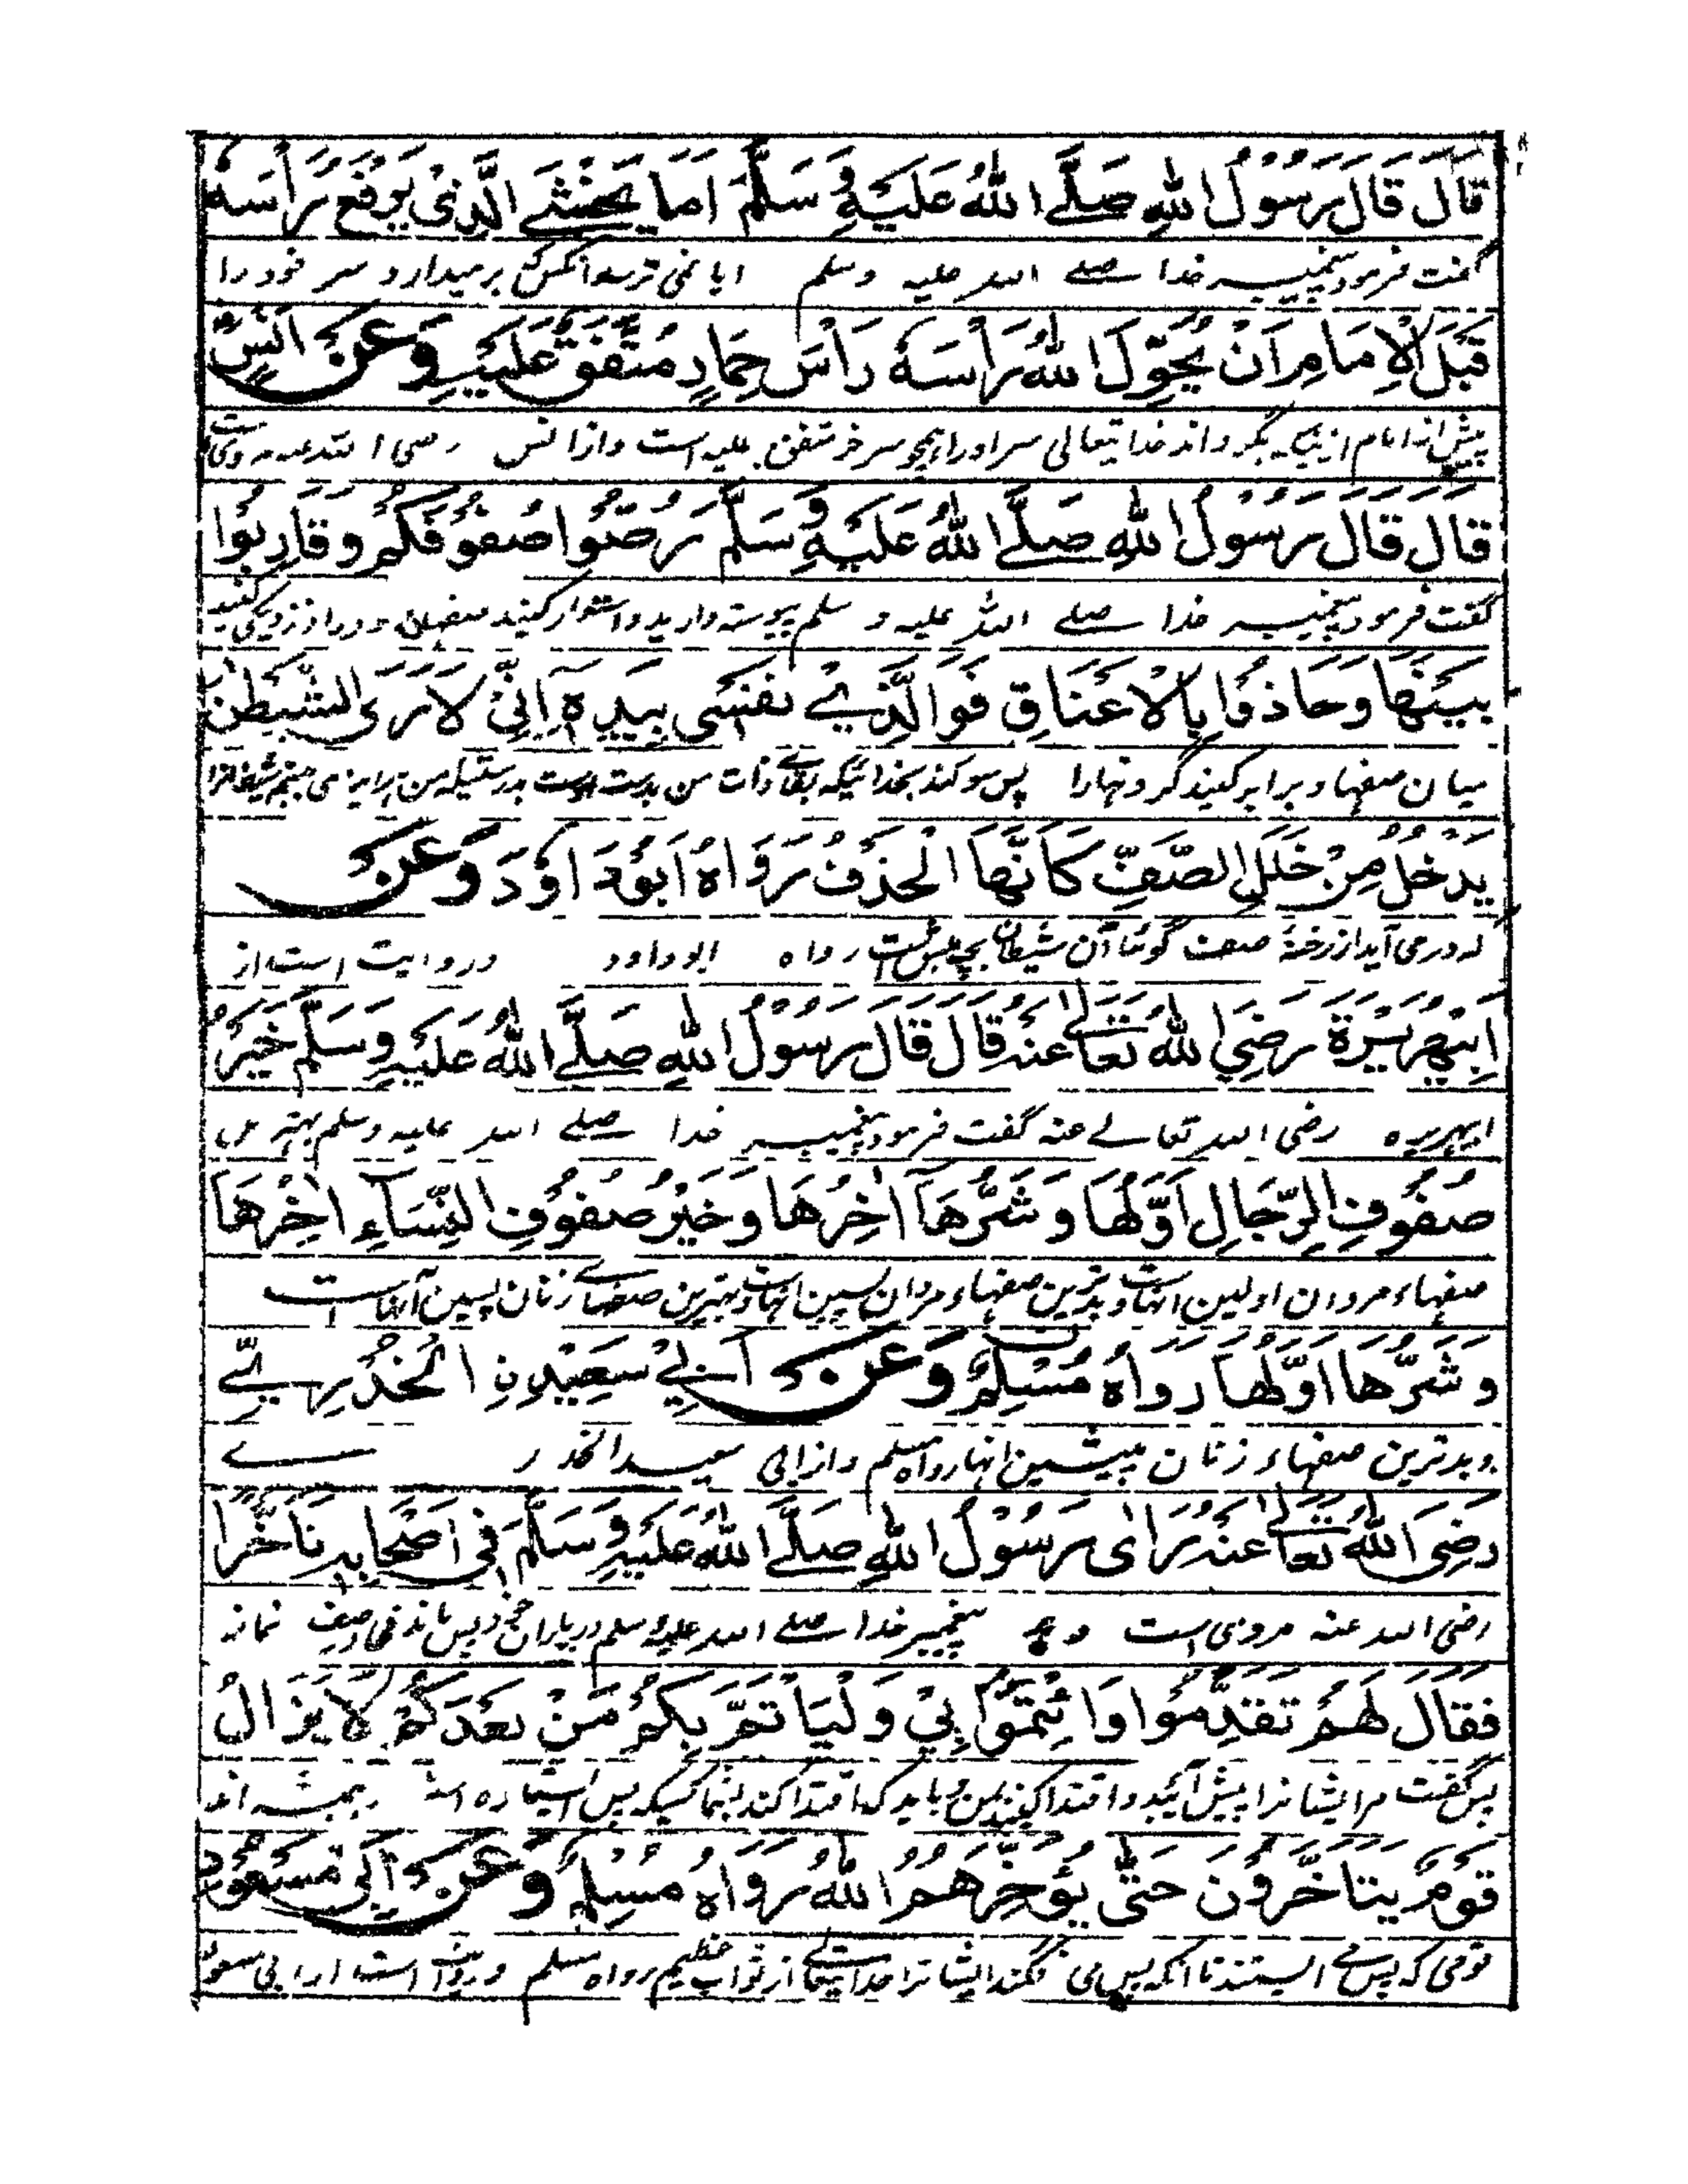 قَالَ قَالَ رَسُوْلُ اللهِ صَلَّے اللهُ عَلَيْهِ وَسَلَّمَ اَمَا يَخْشٰے الَّذِیْ يَرْفَعُ رَأْسَهٗ
گفت فرمود پیغمبر خدا صلے اللہ علیہ وسلم ایا نمی ترسد انکس کہ برمیدارد سر خود را
قَبْلَ الْاِمَامِ اَنْ يُّحَوِّلَ اللهُ رَأْسَهٗ رَأْسَ حِمَارٍ مُتَّفَقٌ عَلَيْهِ وَعَنْ اَنَسٍ
پیش از امام ازینکہ بگرداند خدا یتعالی سر اورا ہمچو سر خر متفق علیہ است واز انس رضی اللہ عنہ مروی است
قَالَ قَالَ رَسُوْلُ اللهِ صَلَّے اللهُ عَلَيْهِ وَسَلَّمَ رُصُّوْا صُفُوْفَكُمْ وَقَارِبُوْا
گفت فرمود پیغمبر خدا صلے اللہ علیہ و سلم پیوستہ دارید و استوار کنید صفہا و نزدیکی کنید
بَيْنَهَا وَحَاذُوْا بِالْاَعْنَاقِ فَوَالَّذِیْ نَفْسِیْ بِيَدِهٖ اِنِّیْ لَاَرَی الشَّيْطٰنَ
میان صفہا و برابر کنید گردنہارا پس سوکند بخدائیکہ بقاے ذات من بدست اوست بدرستیکہ من می بینم شیطانرا
يَدْخُلُ مِنْ خَلَلِ الصَّفِّ كَاَنَّهَا الْحَذَفُ رَوَاهُ اَبُوْدَاوٗدَ وَعَنْ
کہ درمی آید از رخنۂ صف گویا آن شیطان بچہ است رواہ ابو داود و روایت است از
اَبِیْهُرَيْرَةَ رَضِيَ اللهُ تَعَالٰی عَنْهُ قَالَ قَالَ رَسُوْلُ اللهِ صَلَّے اللهُ عَلَيْهِ وَسَلَّمَ خَيْرُ
ابیہریرہ رضی اللہ تعالے عنہ گفت فرمود پیغمبر خدا صلے اللہ علیہ وسلم بہترین
صُفُوْفِ الرِّجَالِ اَوَّلُهَا وَشَرُّهَا اٰخِرُهَا وَخَيْرُ صُفُوْفِ النِّسَاءِ اٰخِرُهَا
صفہاء مردان اولین انہاست و بدترین صفہاء مردان پسین انہاست و بہترین صفہاے زنان پسین آنہاست
وَشَرُّهَا اَوَّلُهَا رَوَاهُ مُسْلِمٌ وَعَنْ اَبِیْ سَعِيْدِنِ الْخُدْرِیِّ
و بدترین صفہاء زنان پیشین انہا رواہ مسلم واز ابی سعید الخدرے
رَضِیَ اللهُ تَعَالٰی عَنْهُ رَاٰی رَسُوْلُ اللهِ صَلَّے اللهُ عَلَيْهِ وَسَلَّمَ فِیْ اَصْحَابِهٖ تَأَخُّرًا
رضی اللہ عنہ مروی است دید پیغمبر خدا صلے اللہ علیہ وسلم در یاران خود پس ماندنی در صف نماز
فَقَالَ لَهُمْ تَقَدَّمُوْا وَأْتَمُّوْا بِیْ وَلْيَأْتَمَّ بِكُمْ مَنْ بَعْدَكُمْ لَا يَزَالُ
پس گفت مر ایشانرا پیش آئید و اقتدا کنید بمن و باید کہ اقتدا کند بشما کسیکہ پس استادہ است ہمیشہ اند
قَوْمٌ يَتَأَخَّرُوْنَ حَتّٰی يُؤَخِّرَهُمُ اللهُ رَوَاهُ مُسْلِمٌ وَعَنْ اَبِیْ مَسْعُوْدٍ
قومی کہ پس می ایستند تا انکہ پس می فگند ایشانرا خدایتعالے از ثواب عظیم رواہ مسلم و روایت است از ابی مسعود